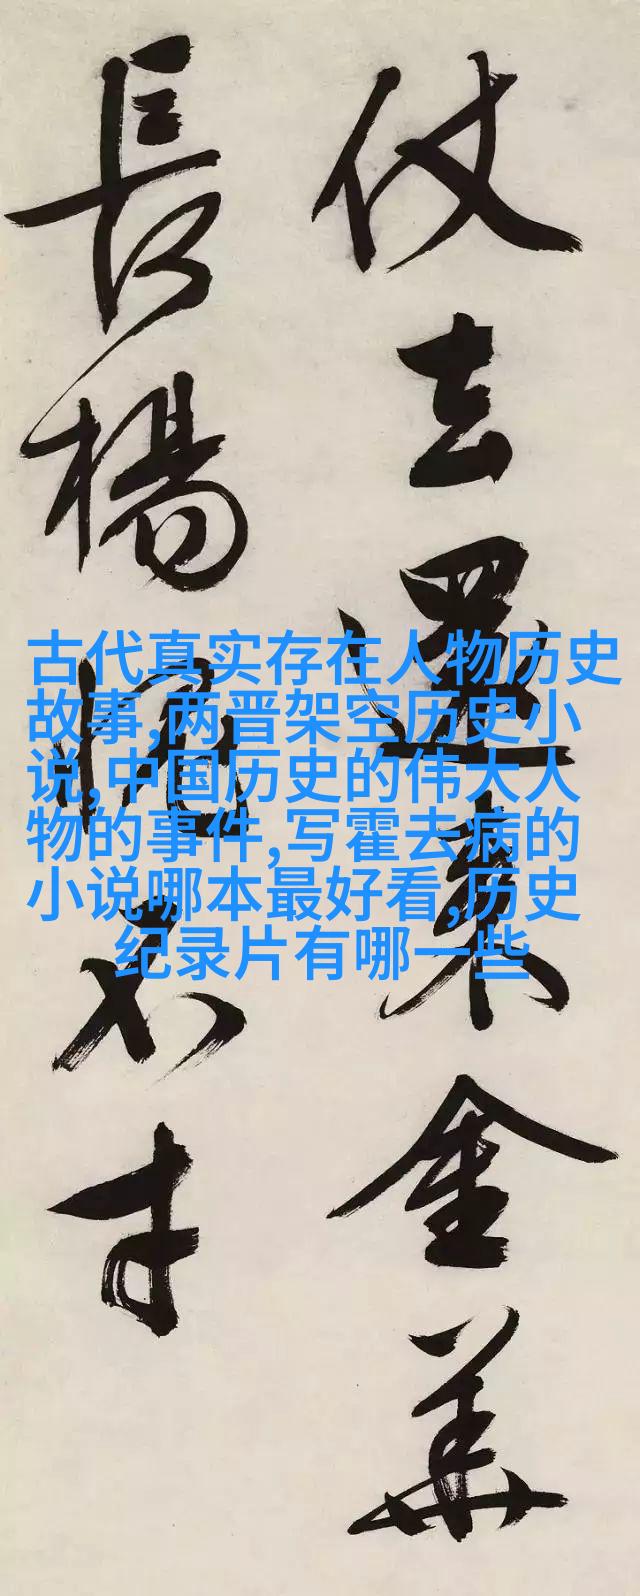 仗去還来金華
長楊愧不才
古代真实存在人物历史
故事,两晋架空历史小
说,中国历史的伟大人
物的事件,写霍去病的
小说哪本最好看,历史
纪录片有哪一些